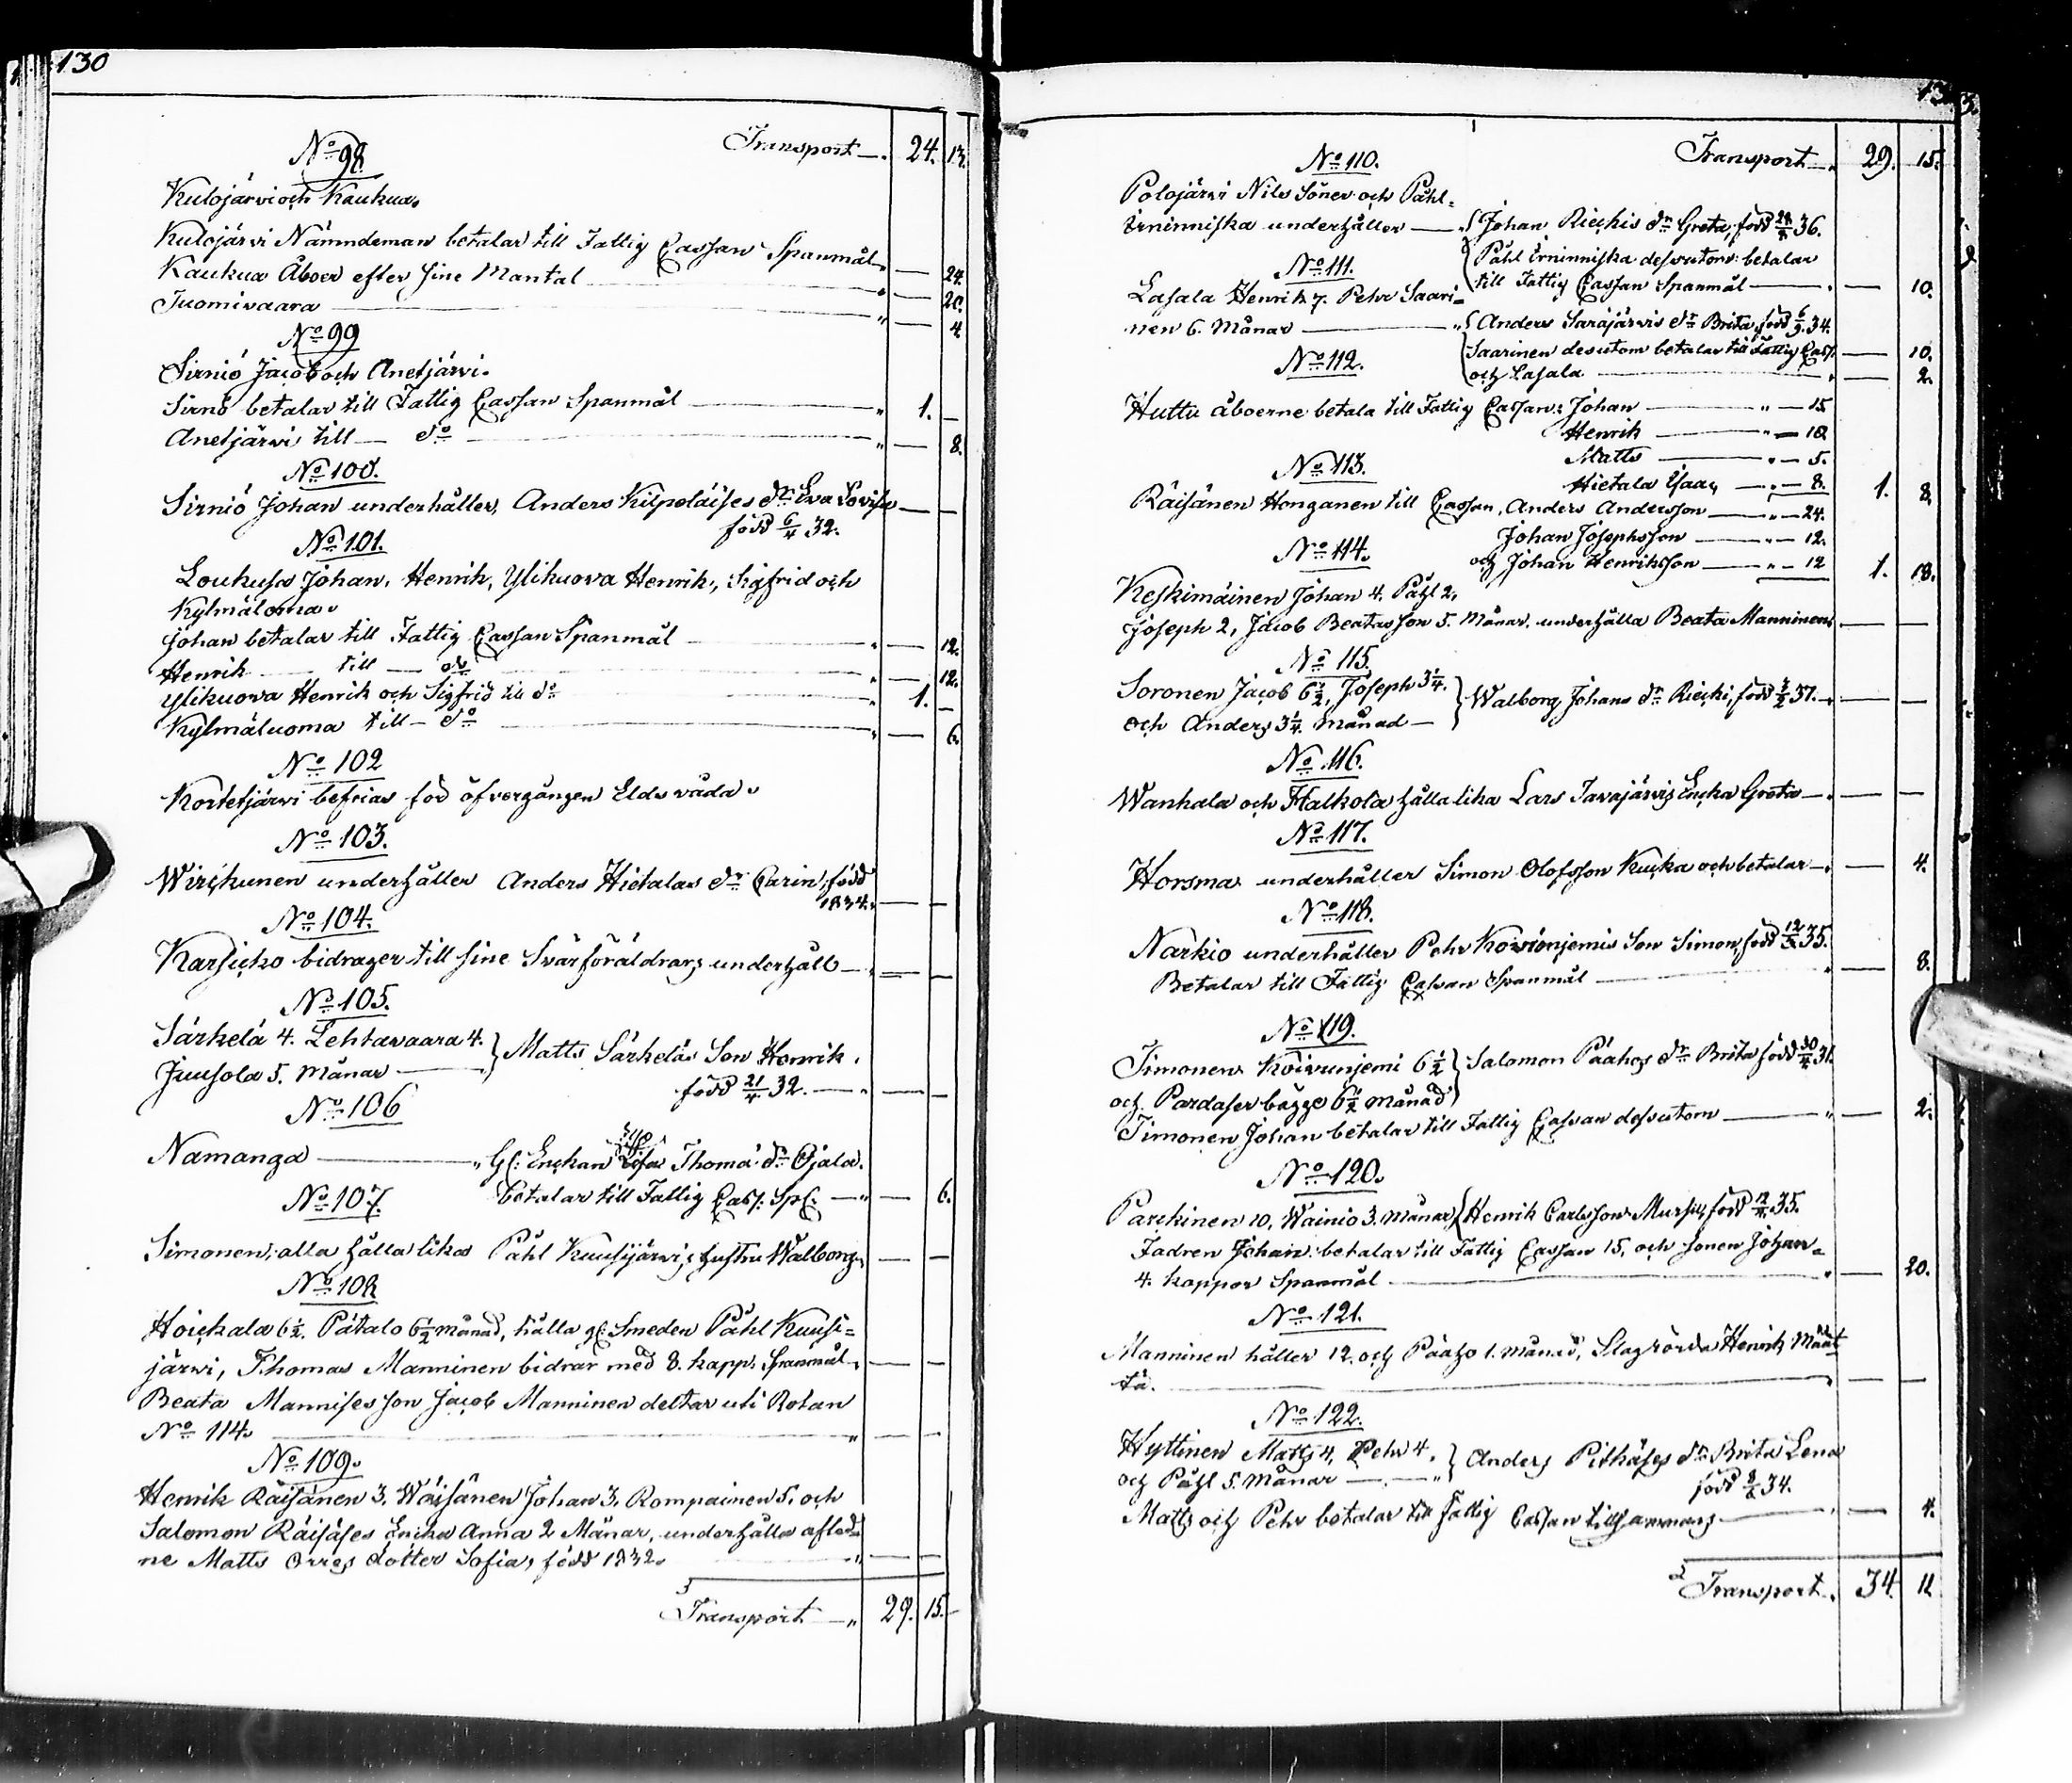 130
Transport 24. 13.
No 98.
Kulojärvi och Kaukua.
Kulojärvi Nämndeman betalar till Fattig Cassan Spanmål — 24.
Kaukua Åboer efter sine Mantal — 20.
Tuomivaara — 4
No 99
Sirniö Jacob och Anetjärvi.
Sirnö betalar till Fattig Cassan Spanmål 1. —
Anetjärvi till — do — 8.
No 100.
Sirniö Johan underhåller, Anders Kilpeläises dr Eva Lovisa — —
född 6/4 32.
No 101.
Loukusa Johan, Henrik, Ylikuova Henrik, Sigfrid och
Kylmäluoma.
Johan betalar till Fattig Cassan Spanmål — 12.
Henrik — till — do — 12.
Ylikuova Henrik och Sigfrid till do 1. —
Kylmäluoma till — do — 6.
No 102
Kortetjärvi befrias för öfvergången Eldsvåda.
No 103.
Wirckunen underhåller Anders Hietalas dr Carin, född
1834. — —
No 104.
Karsicko bidrager till sine Svärföräldrars underhåll — — —
No 105.
Särkelä 4. Lehtavaara 4. } Matts Särkeläs Son Henrik.
Juusola 5. Månar —
född 21/4 32. — — —
No 106
Namanga — Gl: Enckan Thoma dr Ojala.
betalar till Fattig Cass. Spl: — — 6.
No 107.
Simonen, alla hålla lika Påhl Kuusijärvis hustru Walborg — —
No 108
Hoickala 6½. Pätalo 6½ månad, hålla gl: Smeden Påhl Kuusi=
järvi, Thomas Manninen bidrar med 8. kapp. Spanmål. — —
Beata Mannises son Jacob Manninen deltar uti Rotan
No 114. — —
No 109.
Henrik Räisänen 3. Wäisänen Johan 3. Rompainen 5. och
Salomon Räisäses Encka Anna 2 Månar, underhålla afled=
ne Matts Orres dotter Sofia, född 1832. — —
Transport — 29. 15.
Transport 29. 15.
No 110.
Polojärvi Nils Söner och Påhl=
Irninniska underhåller — { Johan Rieckis dr Greta, född 36.
Påhl Irninniska dessutom betalar
till Fattig Cassan Spanmål — — 10.
No 111.
Lasala Henrik 7. Pehr Saari=
nen 6. Månar — { Anders Sarajärvis dr Brita, född 6/9 34.
Saarinen desutom betalar till Fattig Cass. — 10.
och Lasala — — 2.
No 112.
Huttu åboerne betala till Fattig Cassan: Johan — 15
Henrik — 10
Matts — 5.
Hietala Isaac — 8. 1. 8.
No 113.
Räisänen Honganen till Cassan, Anders Andersson — 24.
Johan Josephsson — 12.
och Johan Henriksson — 12 1. 18.
No 114.
Keskimäinen Johan 4. Påhl 2,
Joseph 2, Jacob Beatasson 5. Månar. underhålla Beata Manninen — —
No 115.
Soronen Jacob 6½, Joseph 3¼. } Walborg Johans dr Riecki, född 37. — — —
och Anders 3¼. månad —
No 116.
Wanhala och Halkola hålla lika Lars Tavajärvis Encka Greta — — —
No 117.
Horsma underhåller Simon Olofsson Kucka och betalar — — 4.
No 118.
Närkio underhåller Pehr Koivonjemis Son Simon, född 35.
Betalar till Fattig Cassan Spanmål — — 8.
No 119.
Timonen Koivunjemi 6½ } Salomon Paahos dr Brita född 30/4 31.
och Pardaser bägge 6½ månad
Timonen Johan betalar till Fattig Cassan dessutom — — 2.
No 120.
Parckinen 10, Wainio 3. månar { Henrik Carlsson född 35.
Fadren Johan betalar till Fattig Cassan 15, och sonen Johan
4. kappor Spanmål — — 20.
No 121.
Manninen håller 12. och Paaho 1. månad, Slagrörda Henrik Määt
tä. — — —
No 122.
Hyttinen Matts 4, Pehr 4. } Anders Pitkäses dr Brita Lena
och Påhl 5. Månar —
född 34.
Matts och Pehr betalar till Fattig Cassan tillsammans — — 4.
Transport. 34. 11